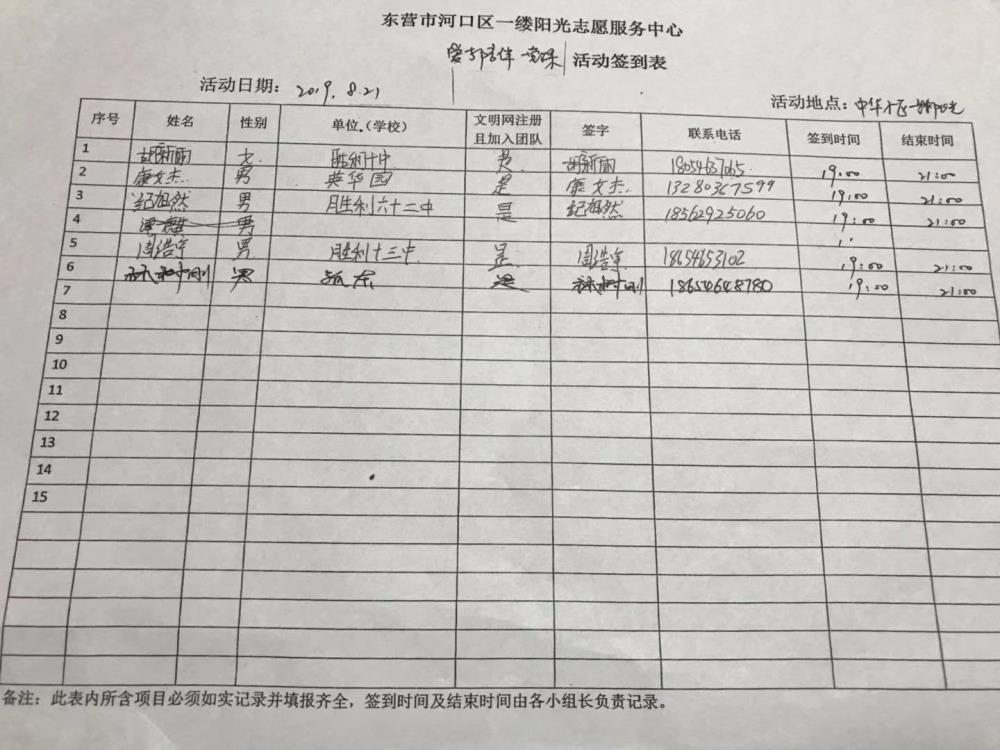 东营市河口区一缕阳光志愿服务中心
活动签到表
活动日期：2019.8.21
活动地点：中华
序号 姓名 性别 单位.（学校） 文明网注册且加入团队 签字 联系电话 签到时间 结束时间
1 胡新丽 女. 胜利十中 是 胡新丽 18054637065. 19:00 21:00
2 康文杰. 男 英华园 是 康文杰. 13280367599 19:00 21:00
3 纪祖然 男 胜利六十二中 是 纪祖然 18562925060 19:00 21:00
4 男
5 周浩宇 男. 胜利十三中. 是. 周浩宇 18654653102 19:00 21:00
6 男 孤东 是 18654648780 19:00 21:00
7
8
9
10
11
12
13
14
15
备注：此表内所含项目必须如实记录并填报齐全，签到时间及结束时间由各小组长负责记录。